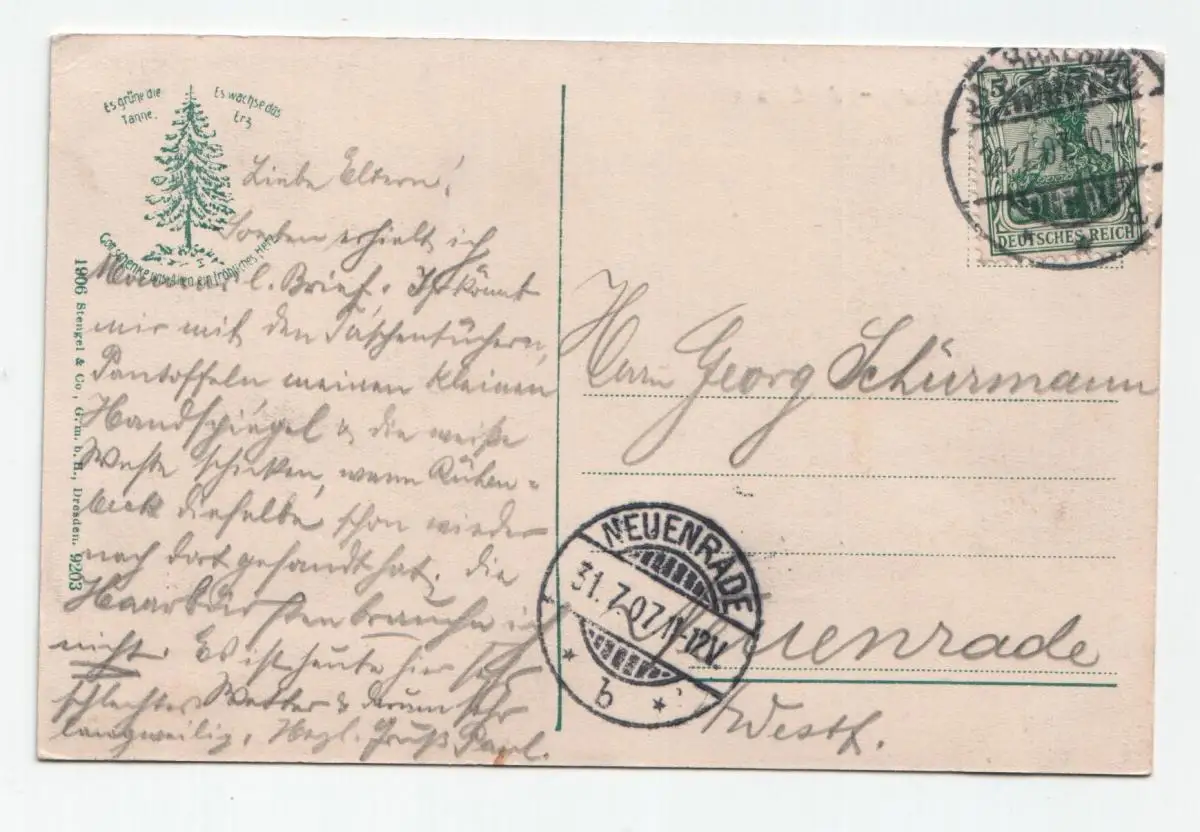 Es grüne die
Tanne.
Es wachse das
Erz
Gott schenke uns allen ein fröhliches Herz
1906 Stengel & Co., G. m. b. H., Dresden. 9203
Liebe Eltern!
Soeben erhielt ich
l. Brief. Ihr könnt
mir mit den Taschentüchern,
Pantoffeln meinen kleinen
Handspiegel & die weiße
Weste schicken, wenn Rüben-
beck dieselbe schon wieder
nach dort gesandt hat. Die
Haarbürsten brauche ich
nicht. Es ist heute hier sehr
schlechtes Wetter & darum sehr
langweilig. Hrzl. Gruß Paul.
5
DEUTSCHES REICH
Herrn Georg Schürmann
NEUENRADE
31.7.07.11-12V.
b
Neuenrade
Westf.